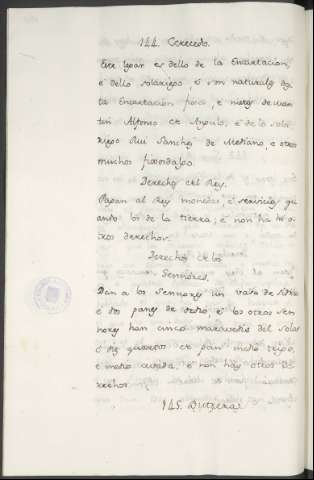 144. Cereceda.
Este logar es dello de la Encartacion,
e dello solariego, e son naturales de
la Encartacion e nietos de Mar
tin Alfonso de Angulo, e de lo sola
riego Rui Sanchez de Mediano, e otros
muchos fijosdalgo.
Derechos del Rey.
Pagan al Rey monedas, e servicios qu
ando los de la tierra; e non ha hi o
tros derechos.
Derechos de los
Sennores.
Dan a los Sennores un vaso de Sidra
e dos panes de
nores han cinco maravedis del solar
e diez quartos de pan medio trigo,
e medio cevada, e non hay otros de
rechos.
145. Butrera